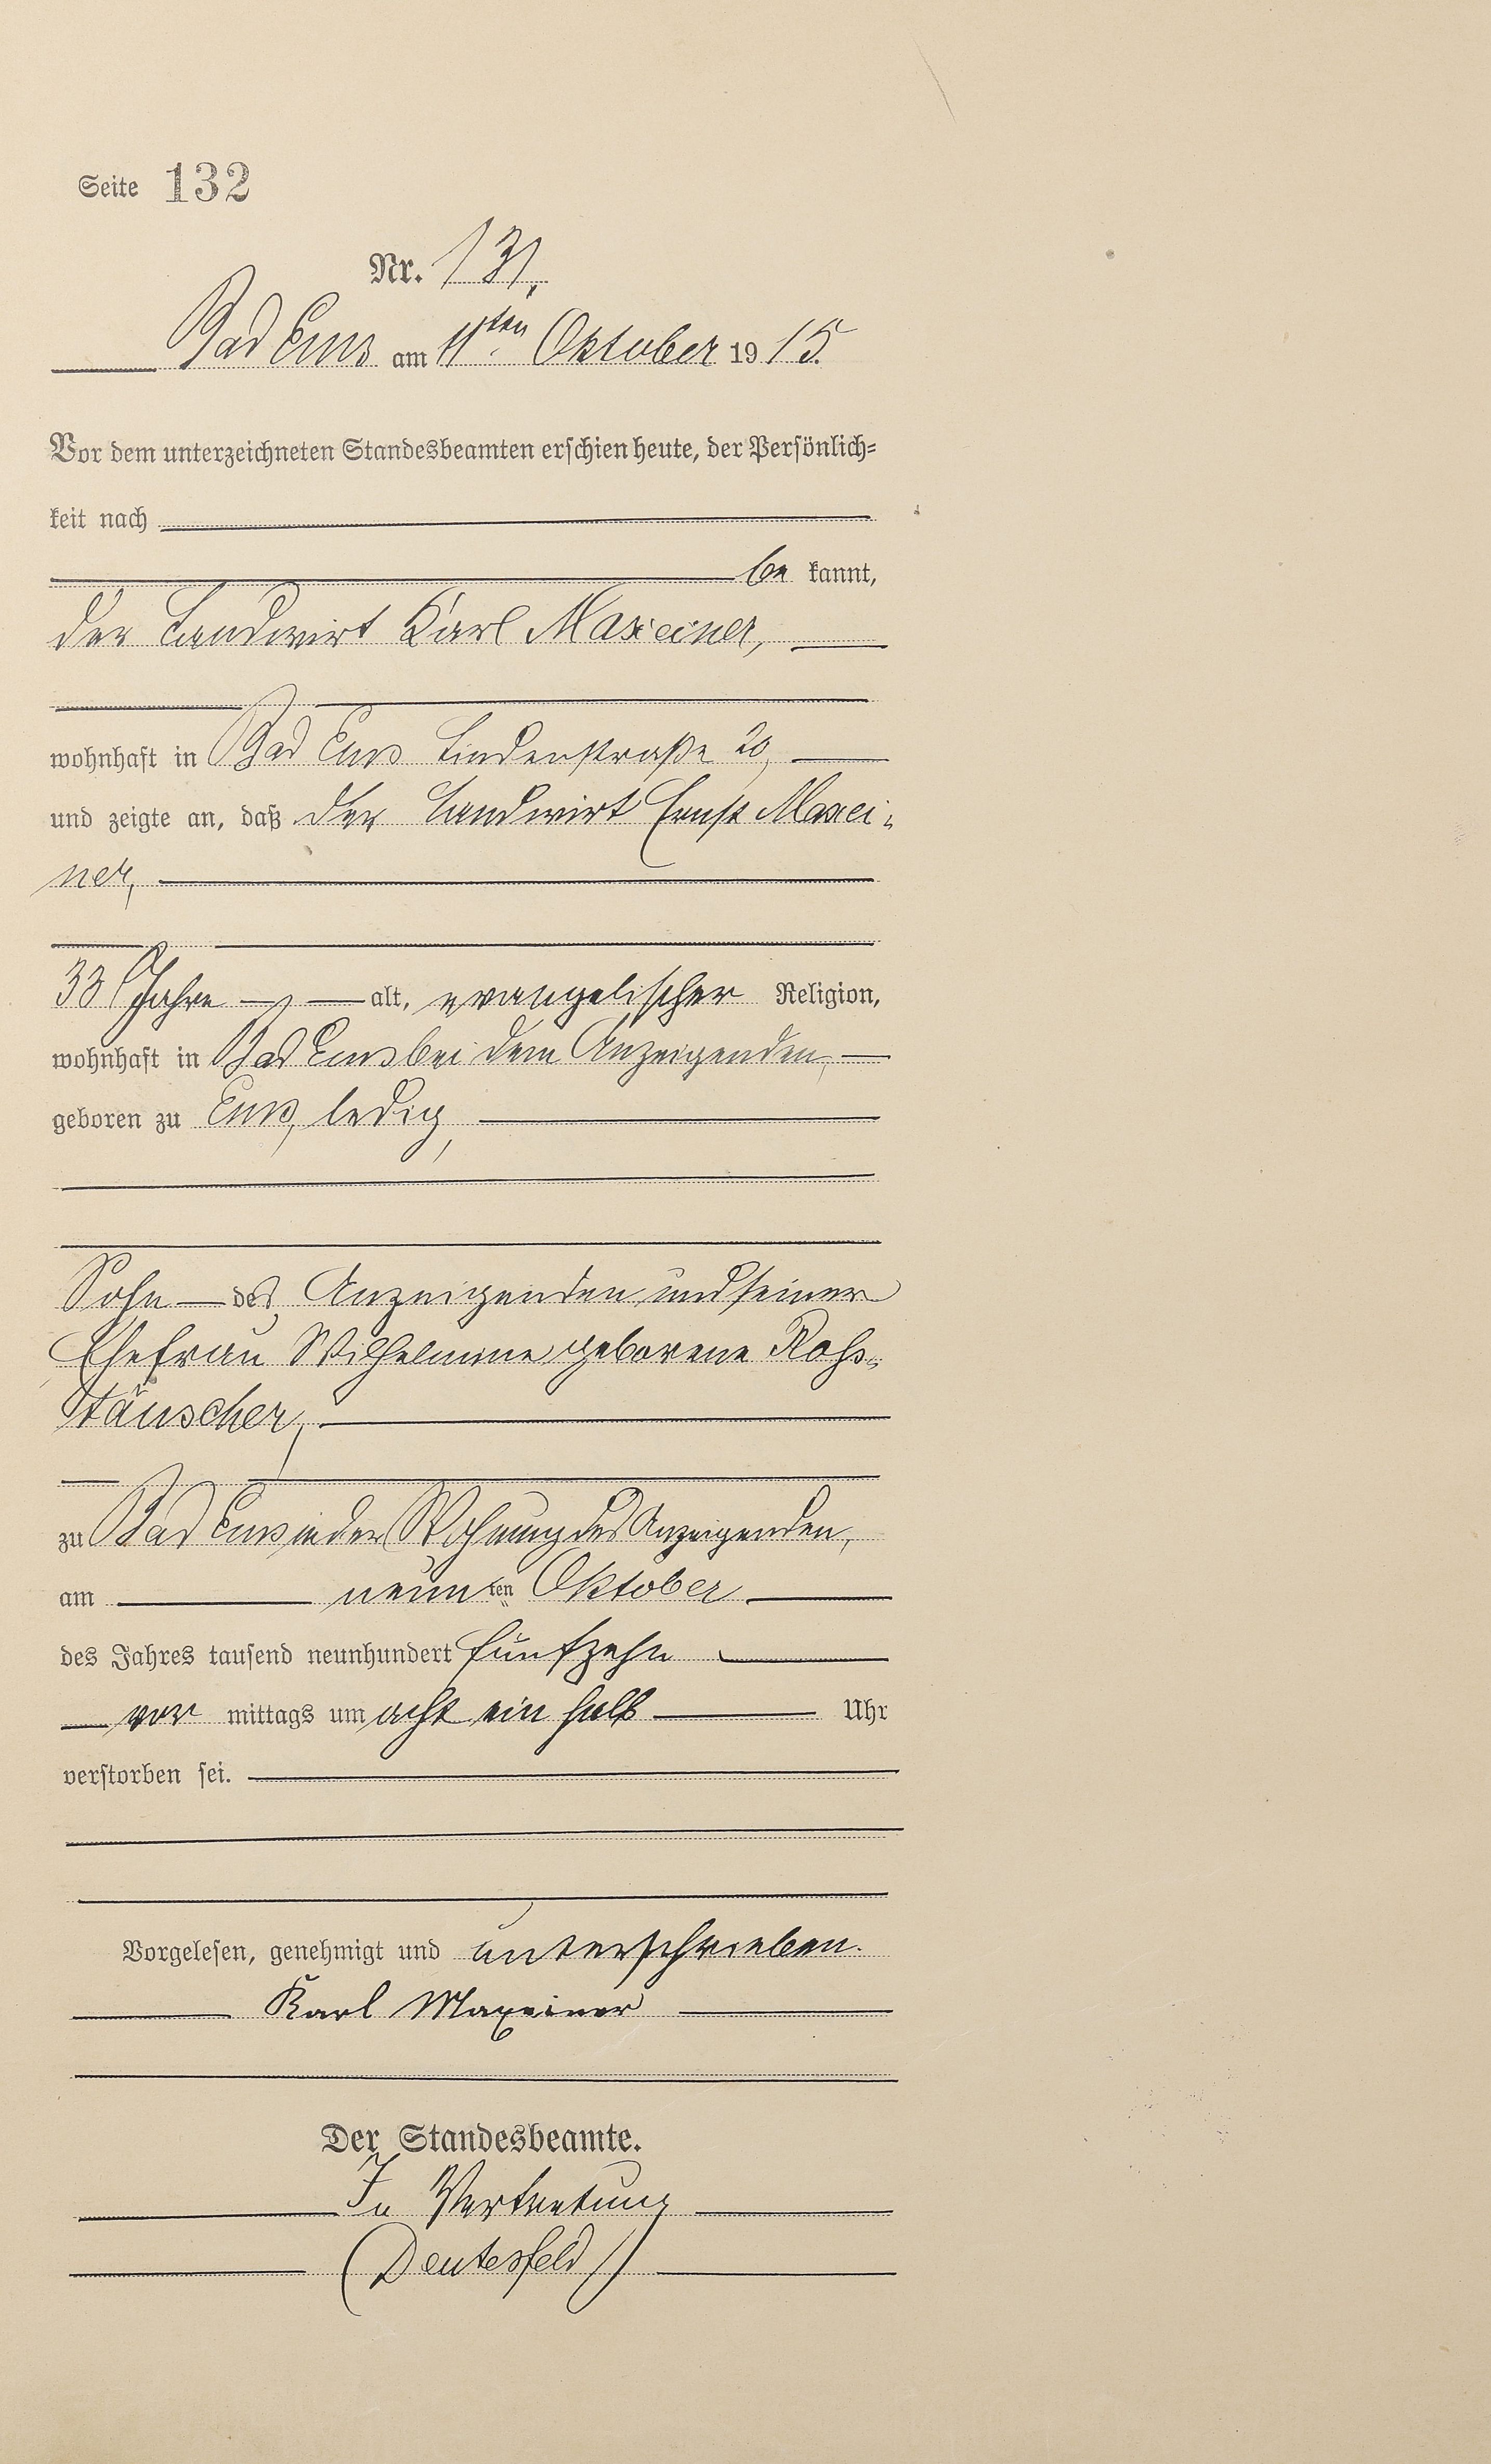 Seite 132
Nr. 131,
Bad Ems am 11ten Oktober 1915.
Vor dem unterzeichneten Standesbeamten erschien heute, der Persönlich=
keit nach
be kannt,
der Landwirt Karl Maxeiner,
wohnhaft in Bad Ems Lindenstraße 20,
und zeigte an, daß der Landwirt Ernst Maxei=
ner,
33 Jahre alt, evangelischer Religion,
wohnhaft in Bad Ems bei dem Anzeigenden,
geboren zu Ems, ledig,
Sohn des Anzeigenden und seiner
Ehefrau Wilhelmine geborene Rohs=
täuscher,
zu Bad Ems in der Wohnung des Anzeigenden,
am neunten Oktober
des Jahres tausend neunhundert fünfzehn
vor mittags um acht ein halb Uhr
verstorben sei.
Vorgelesen, genehmigt und unterschrieben.
Karl Maxeiner
Der Standesbeamte.
In Vertretung
(Deutesfeld)